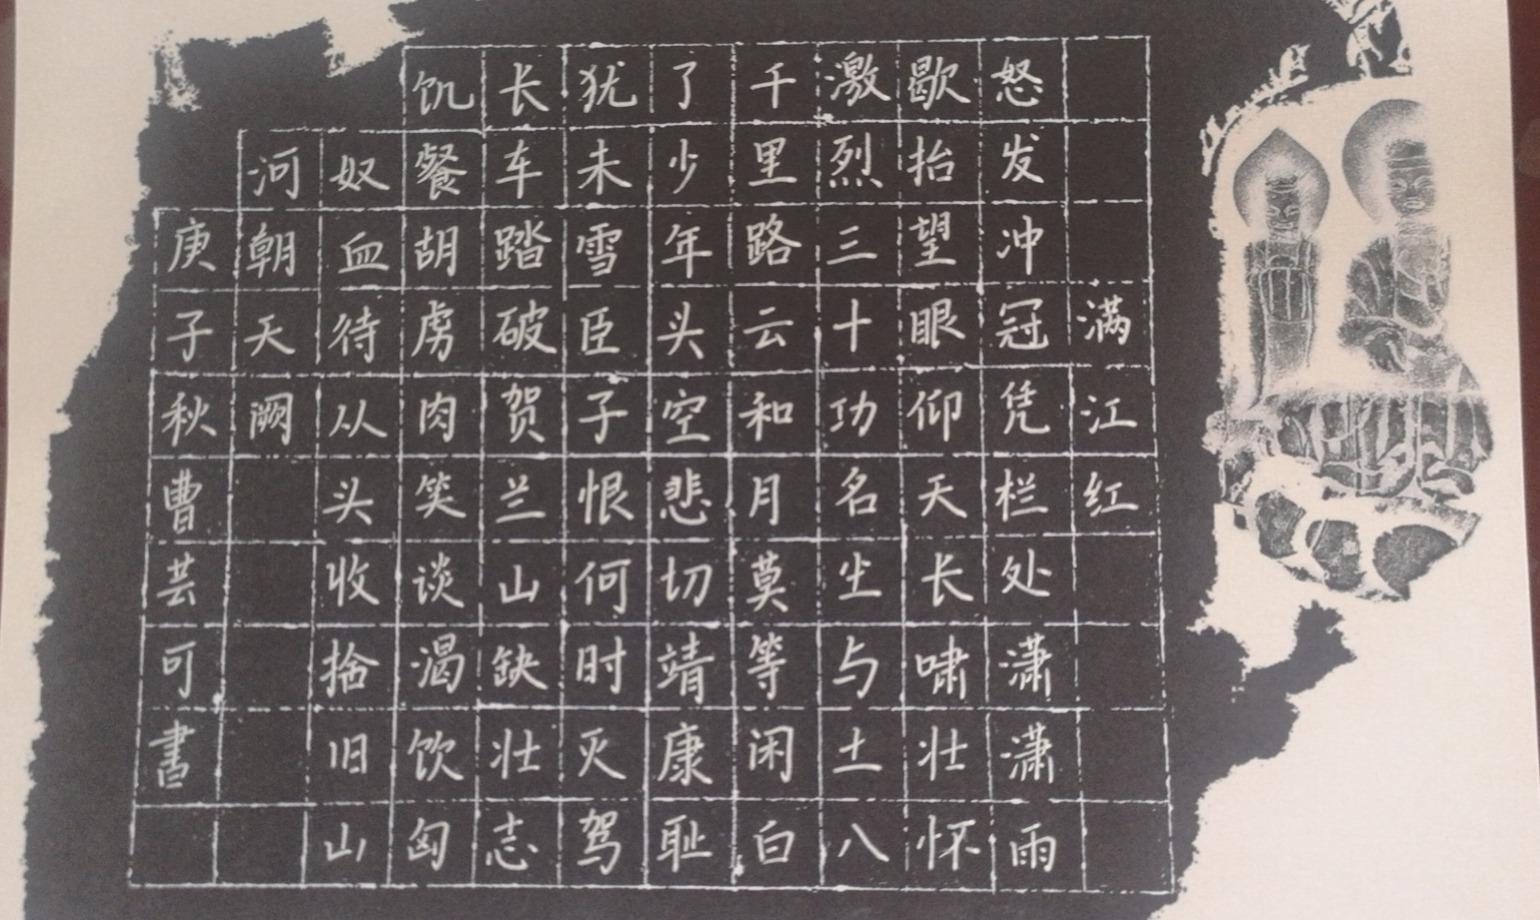 满江红
怒发冲冠凭栏处潇潇雨
歇抬望眼仰天长啸壮怀
激烈三十功名尘与土八
千里路云和月莫等闲白
了少年头空悲切靖康耻
犹未雪臣子恨何时灭驾
长车踏破贺兰山缺壮志
饥餐胡虏肉笑谈渴饮匈
奴血待从头收捨旧山
河朝天阙
庚子秋曹芸可書